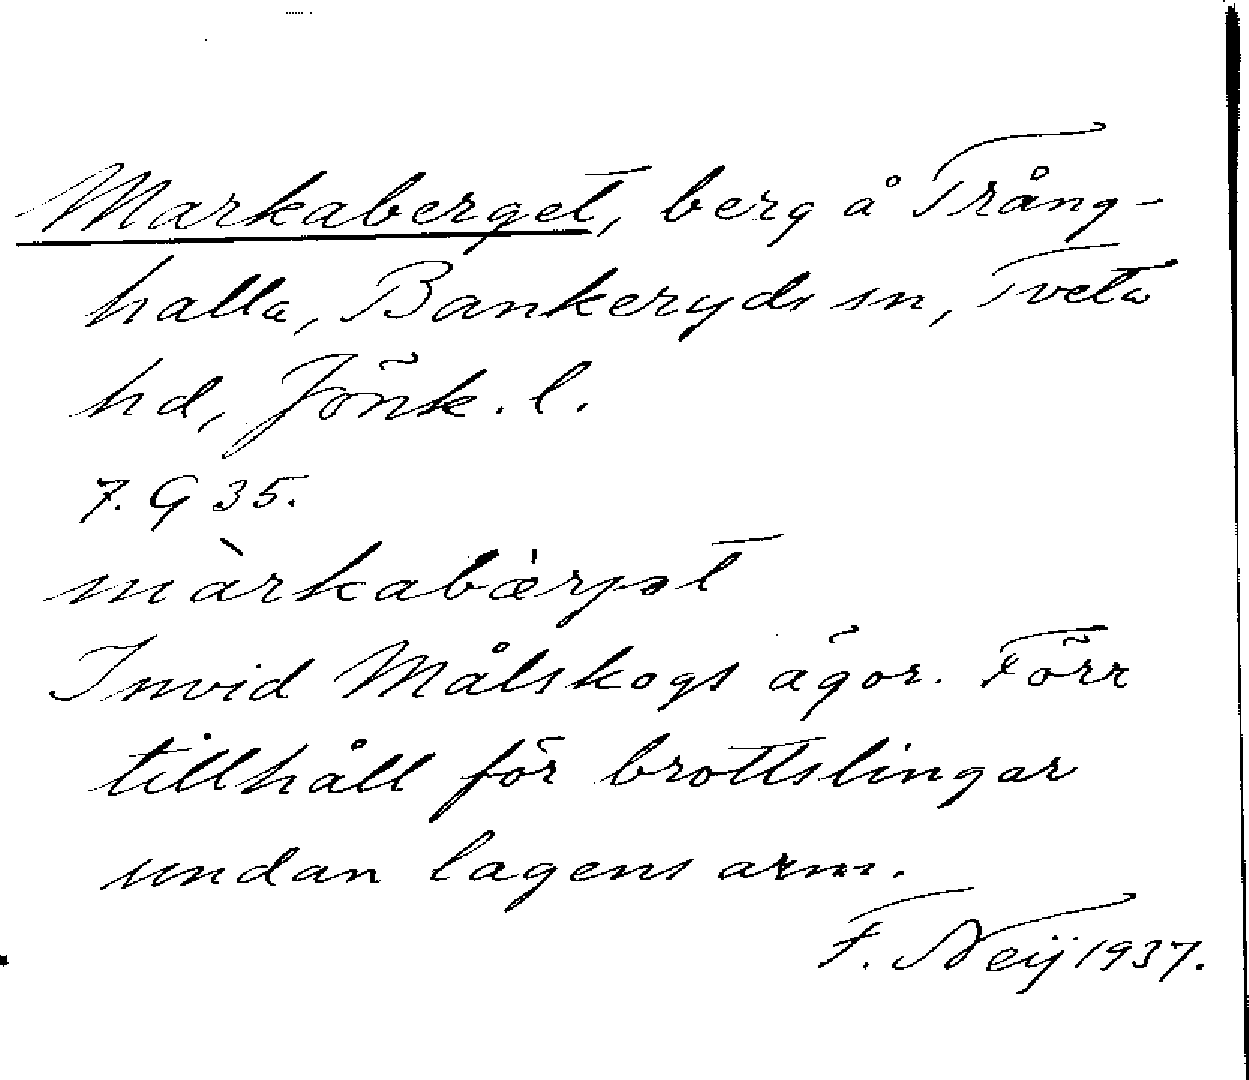 Markaberget, berg å Trång-
halla, Bankeryds sn, Tveta
hd, Jönk. l.
7. G 35.
màrkabæ̀rjət
Invid Målskogs ägor. Förr
tillhåll för brottslingar
undan lagens arm.
F. Neij 1937.